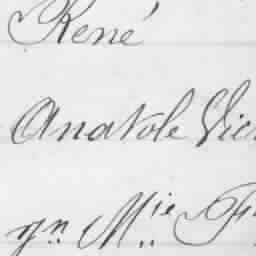 René
Anatole Vic
yn Mie Fr